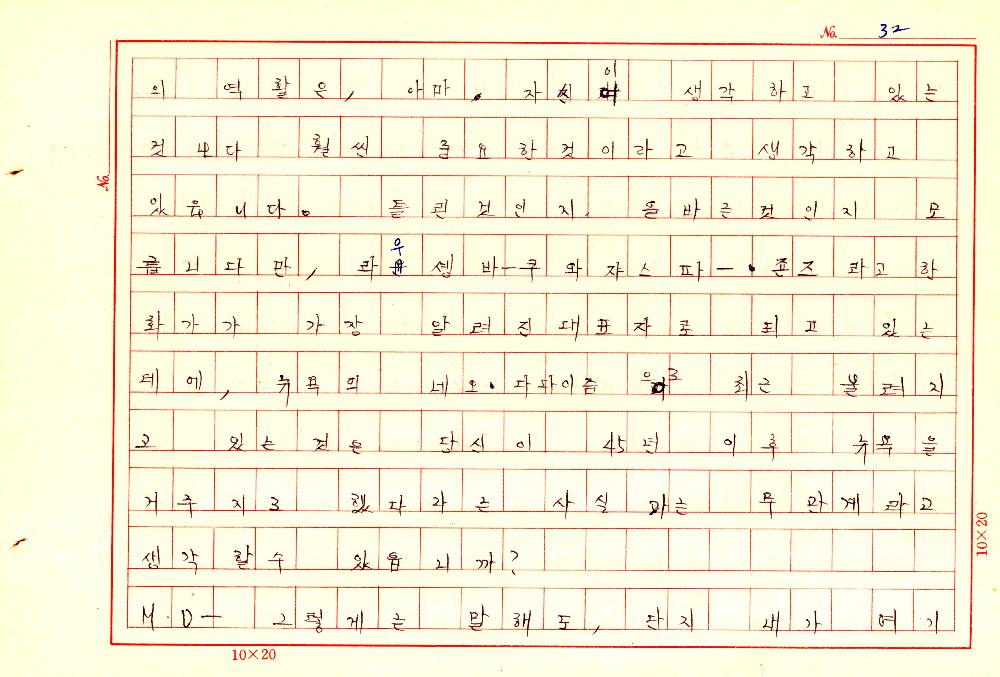 No. 32
의 역활은, 아마. 자신이 생각하고 있는
것보다 훨씬 중요한것이라고 생각하고
있읍니다. 틀린것인지. 올바른것인지 모
릅니다만, 라우셍바—쿠와쟈스파—·죤즈라고한
화가가 가장 알려진대표자로 되고 있는
데에, 뉴욕의 네오·다다이즘이 최근 불려지
고 있는 것은 당신이 45년 이후 뉴욕을
거주지로 했다라는 사실과는 무관계라고
생각할수 있읍니까?
M·D— 그렇게는 말해도, 단지 내가 여기
No.
10×20
10×20